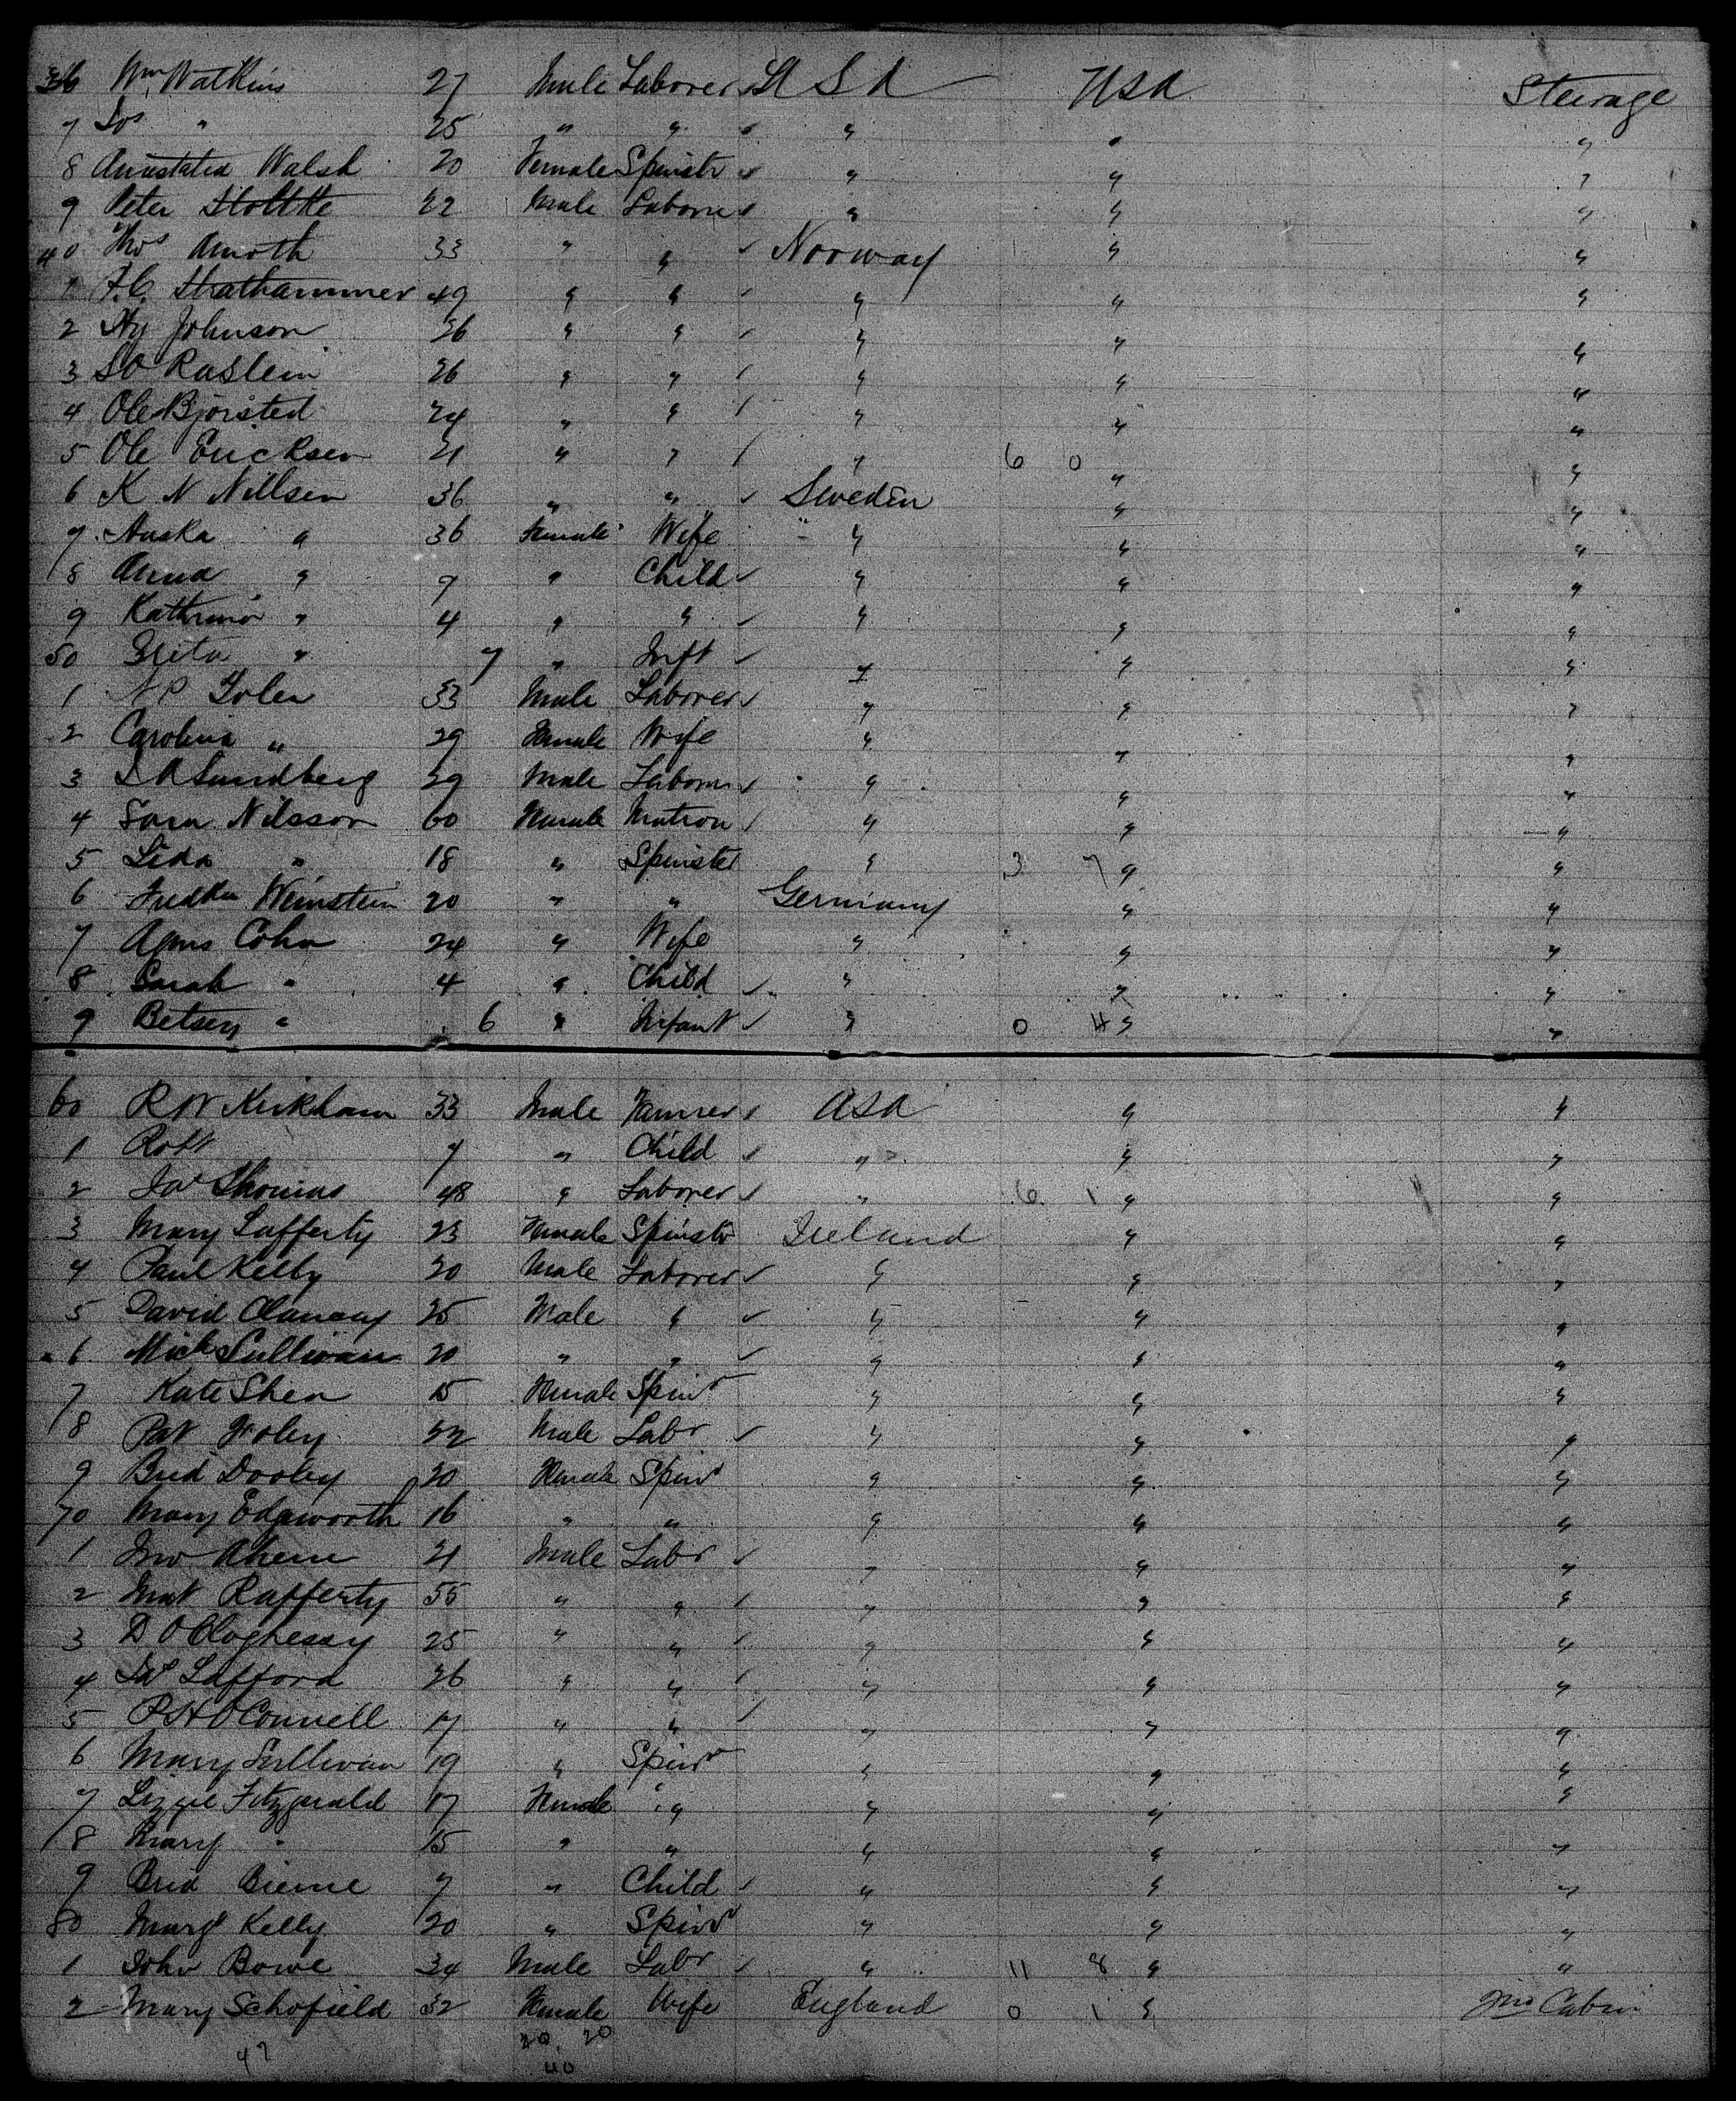 36 Wm Watkins 27 Male Laborer U S A USA Steerage
7 Jos " 25 " " " " "
8 Annstatia Walsh 20 Female Spinstr " " "
9 Peter Stoltke 22 Male Laborer " " "
40 Thos Amoth 33 " " Norway " "
1 F.C. Strathammer 49 " " " " "
2 Ny Johnson 26 " " " " "
3 S O Raslem 26 " " " " "
4 Ole Bjorsted 24 " " " " "
5 Ole Ericksen 21 " " " 6 0 " "
6 K N Nillsen 36 " " Sweden " "
7 Anska " 36 Female Wife " " "
8 Anna " 9 " Child " " "
9 Kathrina " 4 " " " " "
50 Greta " 7 " Inft " " "
1 N P Goler 33 Male Laborer " " "
2 Carolina " 29 Female Wife " " "
3 L A Sundberg 29 Male Laborer " " "
4 Sara Nilsson 60 Female Matron " " "
5 Lida " 18 " Spinster " 3 7 " "
6 Fredka Weinstein 20 " " Germany " "
7 Agnes Cohn 24 " Wife " " "
8 Sarah " 4 " Child " " "
9 Betsey " 6 " Infant " 0 4 " "
60 R W Kirkham 33 Male Farmer USA " "
1 Robt 7 " Child " " "
2 Jas Thomas 48 " Laborer " 6 1 " "
3 Mary Lafferty 23 Female Spinstr Ireland " "
4 Paul Kelly 20 Male Laborer " " "
5 David Clancey 25 Male " " " "
6 Mich Sullivan 20 " " " " "
7 Kate Shea 15 Female Spinr " " "
8 Pat Foley 22 Male Labr " " "
9 Brid Dooley 20 Female Spinr " " "
70 Mary Edgworth 16 " " " " "
1 Jno Ahern 21 Male Labr " " "
2 Mat Rafferty 55 " " " " "
3 D O Cloghessy 25 " " " " "
4 Jas Lafford 26 " " " " "
5 P H O Connell 17 " " " " "
6 Mary Sullivan 19 " Spinr " " "
7 Lizzie Fitzgerald 17 Female " " " "
8 Mary " 15 " " " " "
9 Brid Bierne 7 " Child " " "
80 Margt Kelly 20 " Spinr " " "
1 John Bowe 34 Male Labr " 11 8 " "
2 Mary Schofield 32 Female Wife England 0 1 " Cabin
47 20 20
40